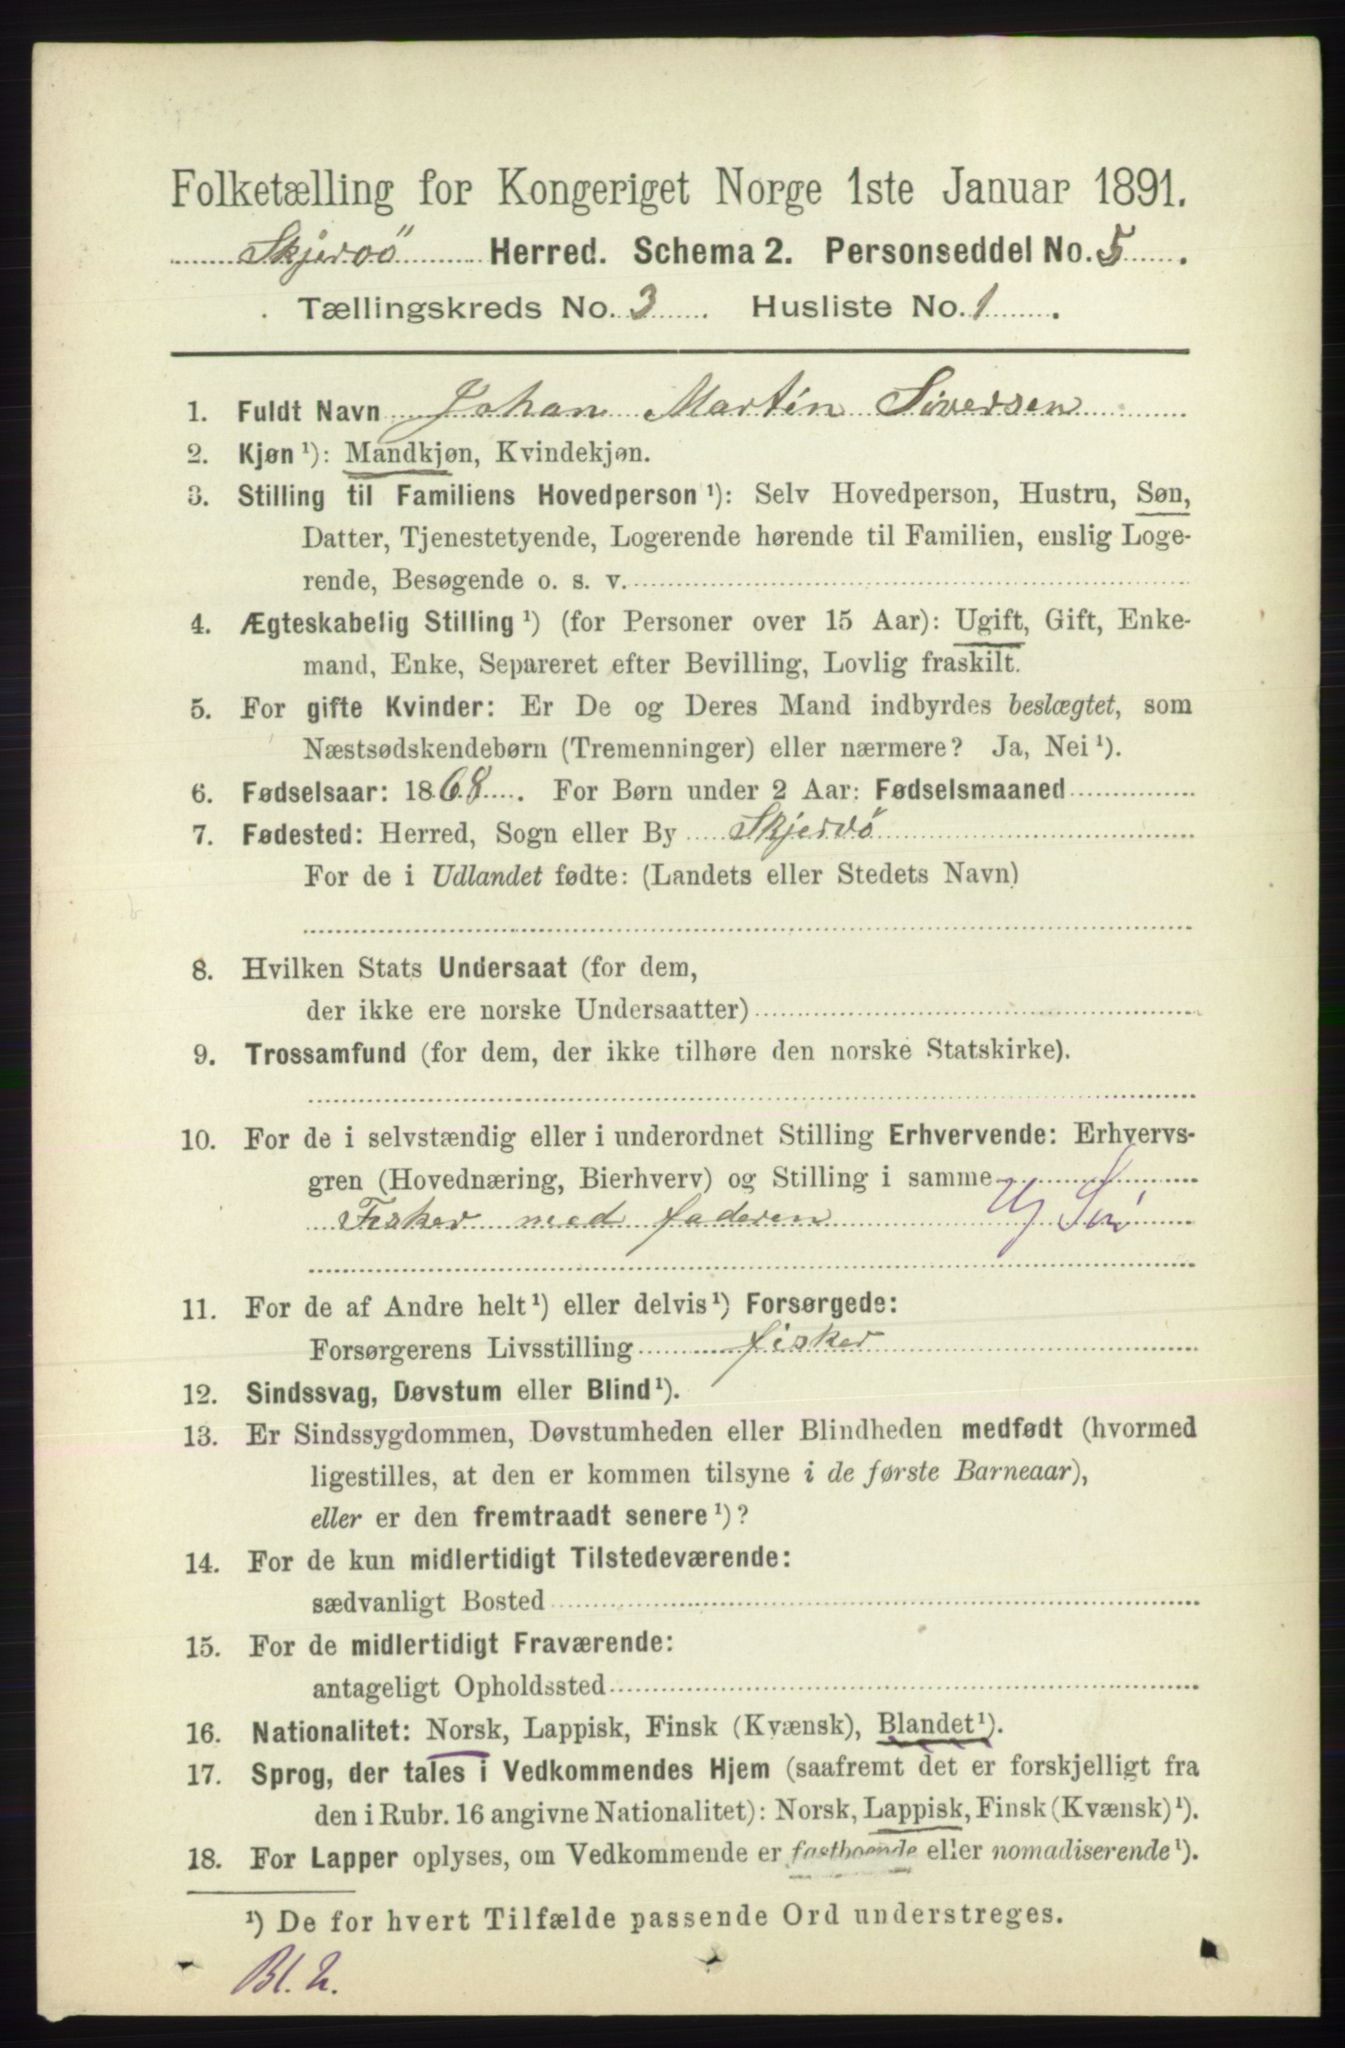 Folketælling for Kongeriget Norge 1ste Januar 1891.
Skjervö Herred. Schema 2. Personseddel No. 5.
Tællingskreds No. 3. Husliste No. 1.
1. Fuldt Navn Johan Martin Siversen
2. Kjøn ¹): Mandkjøn, Kvindekjøn.
3. Stilling til Familiens Hovedperson ¹): Selv Hovedperson, Hustru, Søn,
Datter, Tjenestetyende, Logerende hørende til Familien, enslig Loge-
rende, Besøgende o. s. v.
4. Ægteskabelig Stilling ¹) (for Personer over 15 Aar): Ugift, Gift, Enke-
mand, Enke, Separeret efter Bevilling, Lovlig fraskilt.
5. For gifte Kvinder: Er De og Deres Mand indbyrdes beslægtet, som
Næstsødskendebørn (Tremenninger) eller nærmere? Ja, Nei ¹).
6. Fødselsaar: 1868. For Børn under 2 Aar: Fødselsmaaned
7. Fødested: Herred, Sogn eller By Skjervö
For de i Udlandet fødte: (Landets eller Stedets Navn)
8. Hvilken Stats Undersaat (for dem,
der ikke ere norske Undersaatter)
9. Trossamfund (for dem, der ikke tilhøre den norske Statskirke).
10. For de i selvstændig eller i underordnet Stilling Erhvervende: Erhvervs-
gren (Hovednæring, Bierhverv) og Stilling i samme
Fisker med faderen
11. For de af Andre helt ¹) eller delvis ¹) Forsørgede:
Forsørgerens Livsstilling fisker
12. Sindssvag, Døvstum eller Blind ¹).
13. Er Sindssygdommen, Døvstumheden eller Blindheden medfødt (hvormed
ligestilles, at den er kommen tilsyne i de første Barneaar),
eller er den fremtraadt senere ¹)?
14. For de kun midlertidigt Tilstedeværende:
sædvanligt Bosted
15. For de midlertidigt Fraværende:
antageligt Opholdssted
16. Nationalitet: Norsk, Lappisk, Finsk (Kvænsk), Blandet ¹).
17. Sprog, der tales i Vedkommendes Hjem (saafremt det er forskjelligt fra
den i Rubr. 16 angivne Nationalitet): Norsk, Lappisk, Finsk (Kvænsk) ¹).
18. For Lapper oplyses, om Vedkommende er fastboende eller nomadiserende ¹).
¹) De for hvert Tilfælde passende Ord understreges.